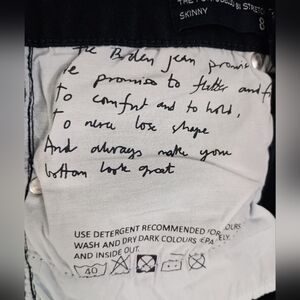 SKINNY
8
The Boden jean promise
We promise to flatter and
To comfort and to hold,
To never lose shape
And always make your
bottom look great
USE DETERGENT RECOMMENDED FOR
WASH AND DRY DARK COLOURS
AND INSIDE OUT.
40